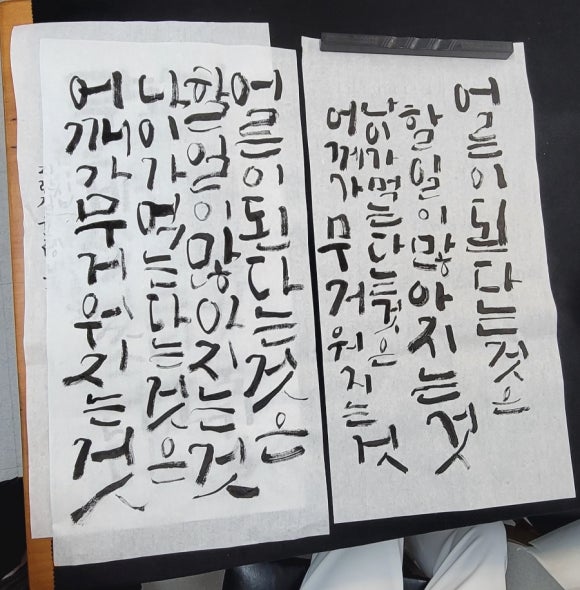 어른이된다는것은
할일이많아지는것
나이가먹는다는것은
어깨가무거워지는것
어른이된다는것은
할일이많아지는것
나이가먹는다는것은
어깨가무거워지는것